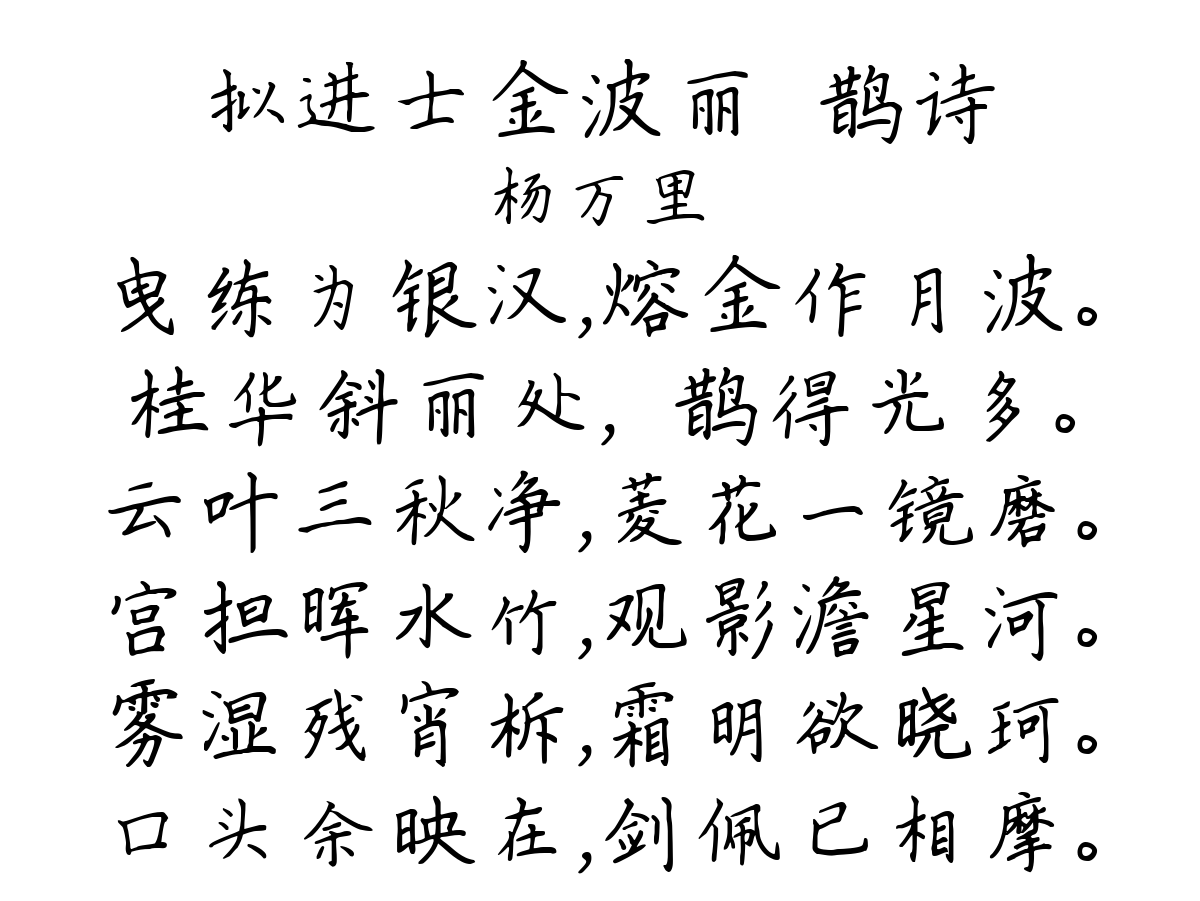 拟进士金波丽 鹊诗
杨万里
曳练为银汉,熔金作月波。
桂华斜丽处, 鹊得光多。
云叶三秋净,菱花一镜磨。
宫担晖水竹,观影澹星河。
雾湿残宵柝,霜明欲晓珂。
口头余映在,剑佩已相摩。